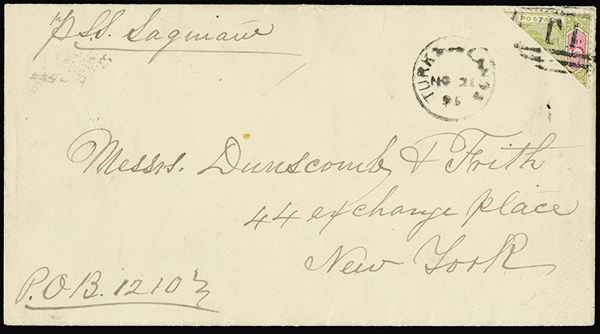 p SS. Saginaw
POSTA
T1
TURK
NO 21
95
Messrs. Dunscomb & Frith
44 exchange Place
New York
P.O.B. 1210